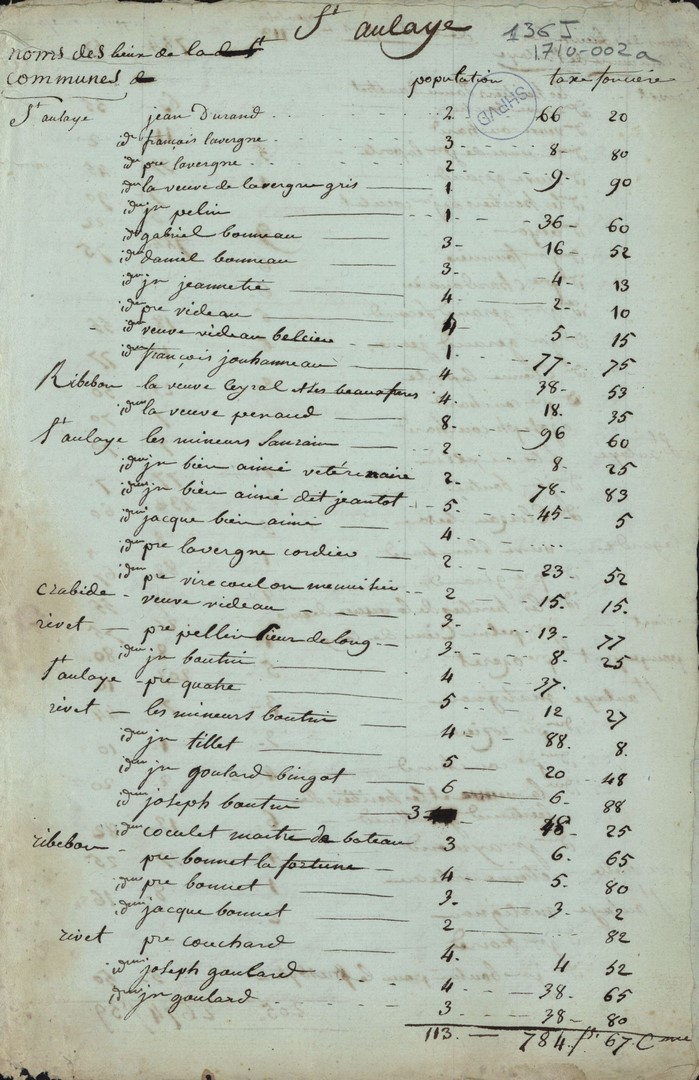 St aulaye
136 J
1710-002a
noms des lieux de la
communes
population taxe foncière
SHPVD
St aulaye jean Durand 2 66 20
idem françois lavergne 3 8 80
idem pre lavergne 2 9 90
idem la veuve de lavergne gris 1
idem jn pelin 1 36 60
idem gabriel bonneau 3 16 52
idem daniel bonneau 3 4 13
idem jn jeannetie 4 2 10
idem pre videau 5 15
idem veuve videau belcieu 1 77 75
idem françois jouhanneau 4 38 53
Ribebon la veuve Ceyral et les beaux freres 4 18 35
idem la veuve penaud 8 96 60
St aulaye les mineurs Sauzain 2 8 25
idem jn bien aimé vetérinaire 2 78 83
idem jn bien aimé dit jeantot 5 45 5
idem jacque bien aimé 4 ...
idem pre lavergne cordier 2 23 52
idem pre virecoulon menuisier 2 15 15
Crabide veuve videau 3 13 77
rivet pre pellin sieur de long 3 8 25
idem jn boutin 4 37
St aulaye pre quatre 5 12 27
rivet les mineurs boutin 4 88 8
idem jn tillet 5 20 48
idem jn goulard bingot 6 6 88
idem joseph boutin 3 25
idem coculet maitre de bateau 3 6 65
ribebon pre bonnet la fortune 4 5 80
idem pre bonnet 3 3 2
idem jacque bonnet 2 82
rivet pre couchard 4 4 52
idem joseph goulard 4 38 65
idem jn goulard 3 38 80
113 784 fr 67 Cmes